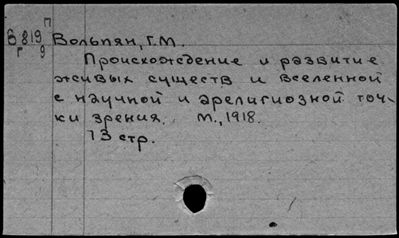 П
Б 819 Вольпян, Г.М.
Г 9
Происхождение и развитие
живых существ и вселенной
с научной и арелигиозной точ-
ки зрения. М., 1918.
13 стр.